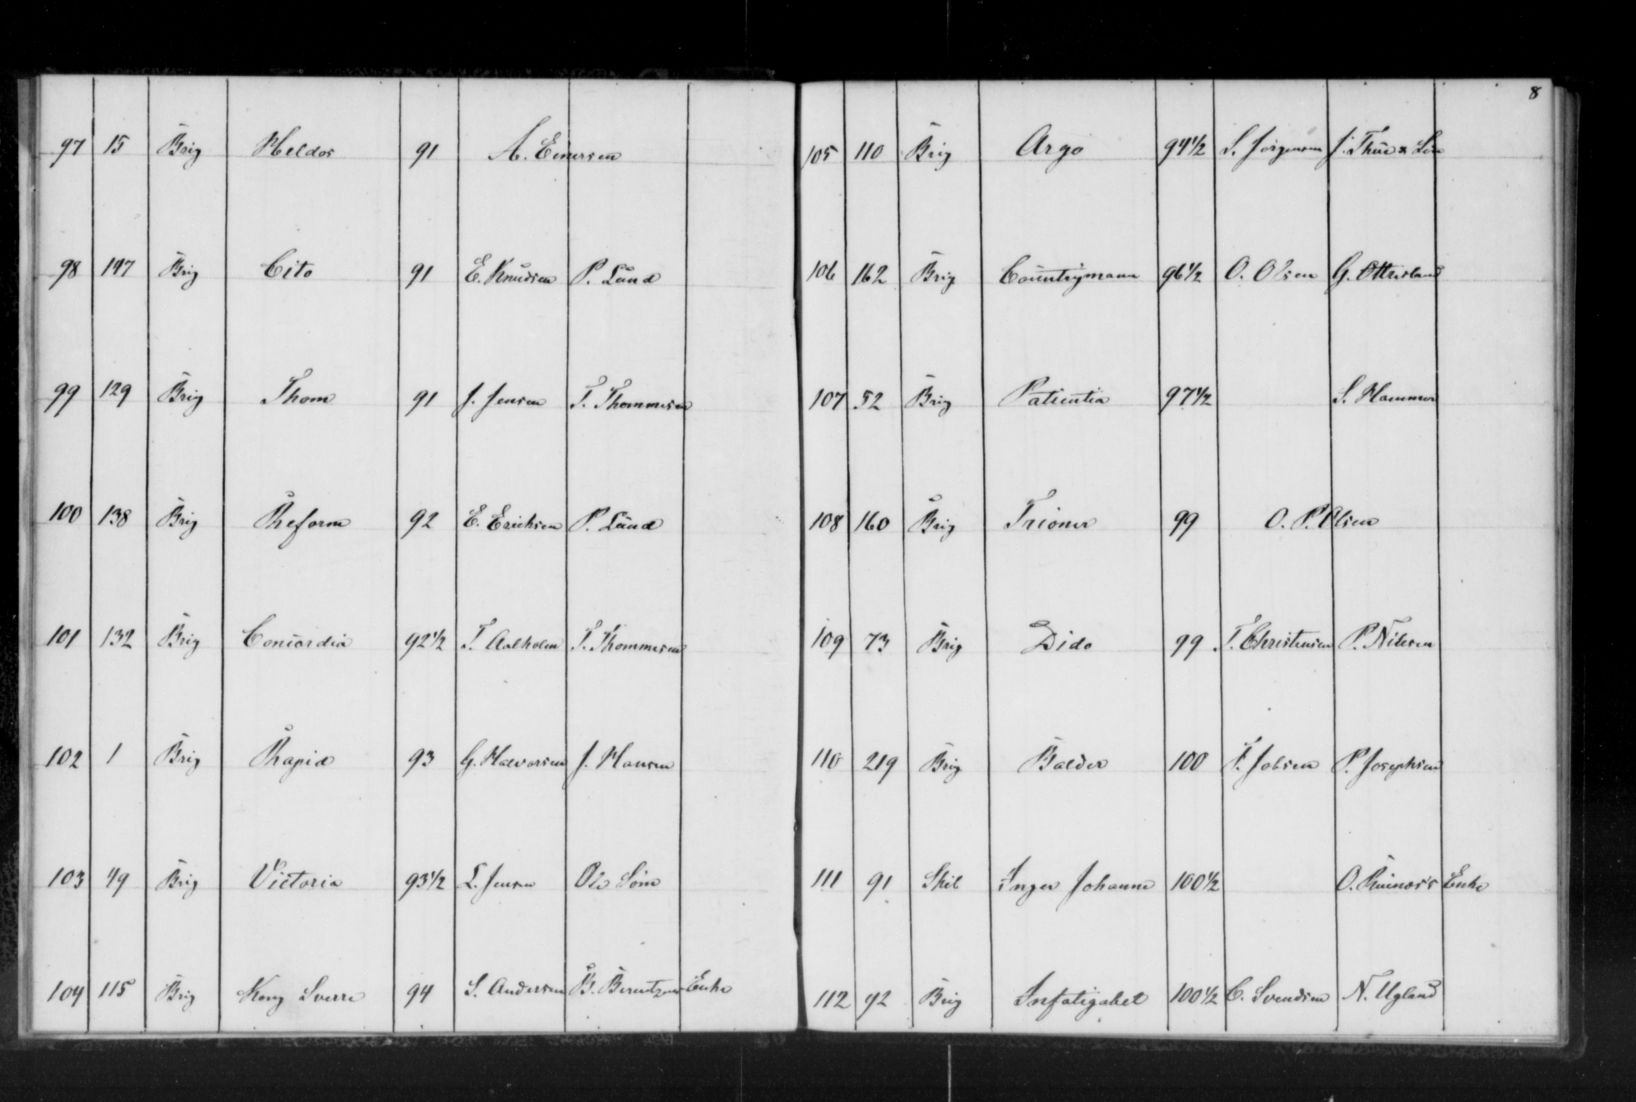 97 15 Brig Meldor 91 A. Evensen
98 147 Brig Cito 91 E. Knudsen P. Lund
99 129 Brig Thom 91 J. Jensen T. Thommesen
100 138 Brig Reform 92 E. Erichsen P. Lund
101 132 Brig Concordia 92½ T. Aalholm T. Thommesen
102 1 Brig Rapid 93 G. Halvorsen J. Hansen
103 49 Brig Victoria 93½ L. Jensen Ole Söm
104 115 Brig Kong Sverre 94 S. Andersen B. Berntzens Enke
8
105 110 Brig Argo 94½ S. Jörgensen J. Thue & Sön
106 162 Brig Countrymann 96½ O. Olsen G. Ottersland
107 52 Brig Patientia 97½ S. Hammer
108 160 Brig Trioner 99 O. P. Olsen
109 73 Brig Dido 99 T. Christensen P. Nielsen
110 219 Brig Balder 100 T. Jobsen P. Josephsen
111 91 Skib Inger Johanne 100½ O. Enke
112 92 Brig Infatigabel 100½ C. Svendsen N. Ugland